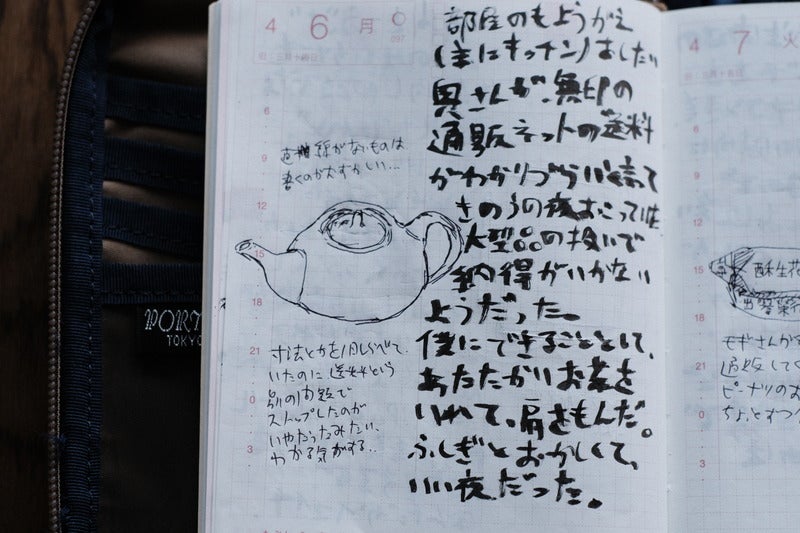 4 6 月
部屋のもようがえ
(主にキッチン)をしたい
奥さんが、無印の
通販ネットの送料
がわかりづらいと言って
きのうの夜おこってた
大型品の扱いで
納得がいかない
ようだった。
僕にできることとして、
あたたかいお茶を
いれて、肩をもんだ。
ふしぎとおかしくて、
いい夜だった。
直線がないものは
書くのがむずかしい…
寸法とかを1月しらべて
いたのに送料という
別の内題で
ストップしたのが
いやだったみたい、
わかる気がする…
6
9
12
15
18
21
0
3
PORT
TOKYO
4 7 火
6
9
12
15
18
21
0
3
酥生花
モギさんが
通販して
ピーナツのお
ちょっとずつ